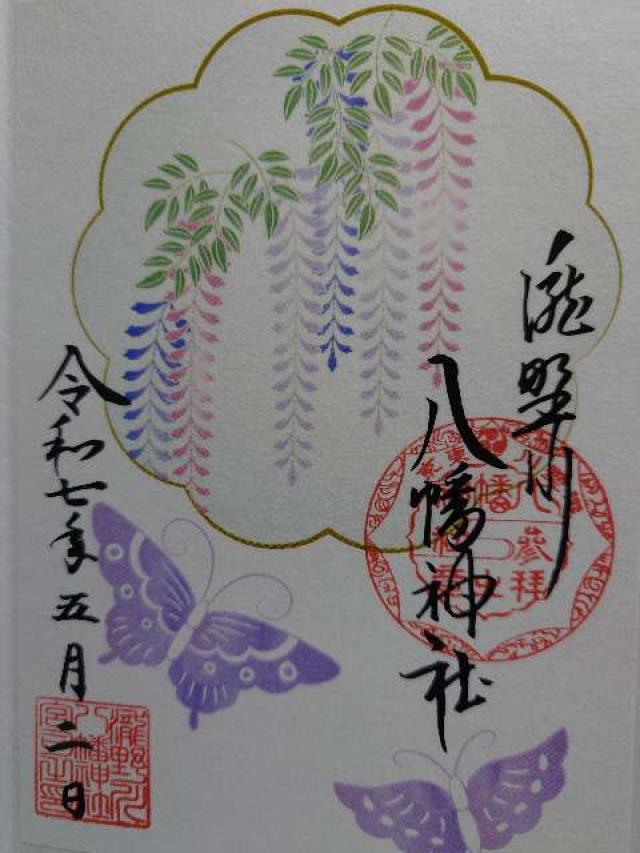 瀧野川
八幡神社
参拝
令和七年五月二日